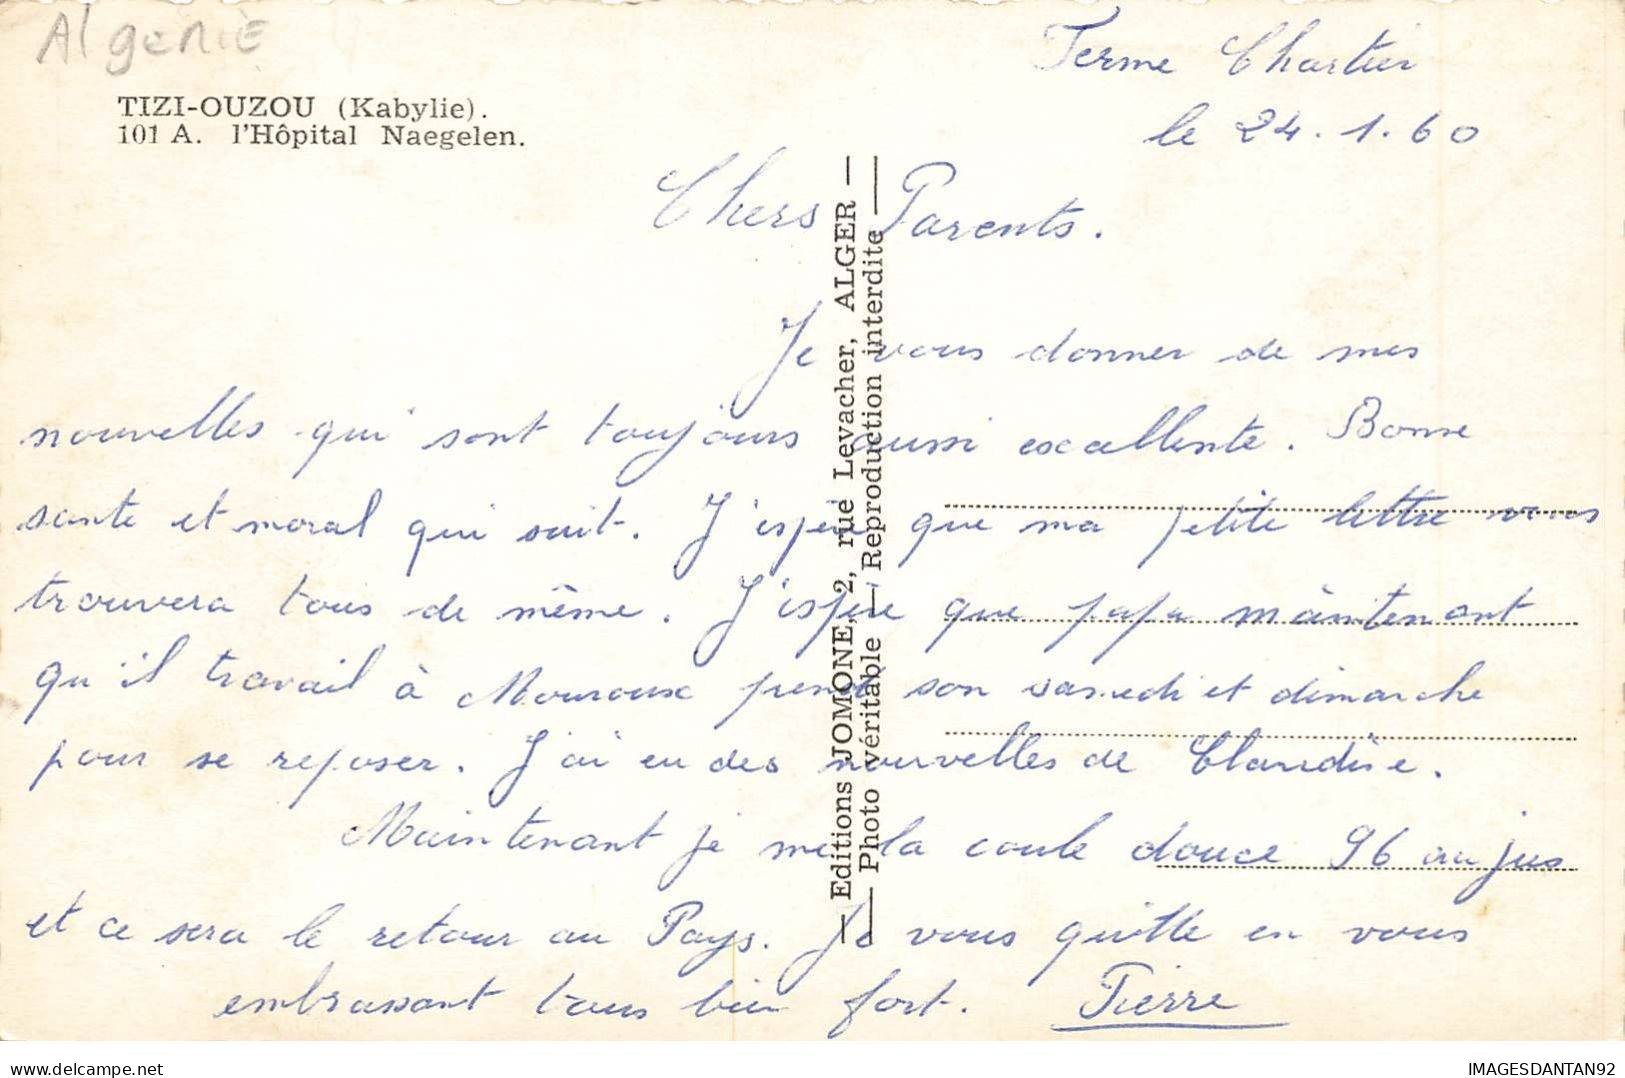 Algerie
TIZI-OUZOU (Kabylie).
101 A. l'Hôpital Naegelen.
Ferme Chartier
le 24.1.60
Chers Parents.
Je vous donner de mes
nouvelles qui sont toujours aussi excellente. Bonne
sante et moral qui suit. J'espère que ma petite lettre vous
trouvera tous de même. J'espère que papa maintenant
qu'il travail à Mouroux prend son samedi et dimanche
pour se reposer. J'ai eu des nouvelles de Claudine.
Maintenant je me la coule douce 96 au jus
et ce sera le retour au Pays. Je vous quitte en vous
embrassant tous bien fort. Pierre
— Editions JOMONE, 2, rue Levacher, ALGER —
— Photo véritable — Reproduction interdite —
IMAGESDANTAN92